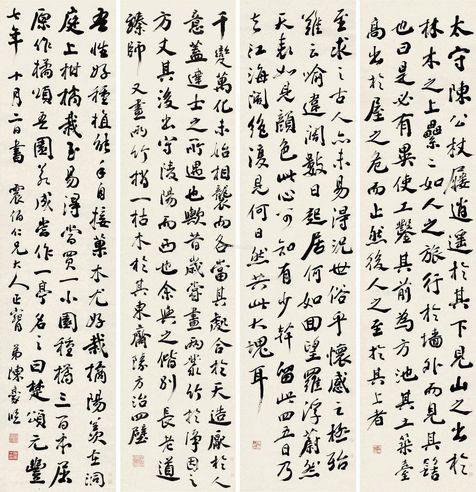 太守陳公杖屨逍遙於其下見山之出於
林木之上纍纍如人之旅行於墻外而見其髻
也曰是必有異使工鑿其前為方池其土築臺
高出於屋之危而止然後人之至於其上者
至求之古人亦未易得況世俗乎懷感之極殆
難云喻違闊數日起居何如回望羅浮蔚然
天表如見顏色此心可知有少幹留此四五日乃
去江海闊絕復見何日然共此大塊耳
千變萬化未始相襲而各當其處合於天造厭於人
意蓋達士之所遇也歟昔歲嘗畫兩叢竹於淨因之
方丈其後出守陵陽而西也余與之偕別長老道
臻師又畫兩竹梢一枯木於其東齋臻方治四壁
吾性好種植能手自接菓木尤好栽橘陽羨在洞
庭上柑橘栽至易得當買一小園種橘三百本屈
原作橘頌吾園若成當作一亭名之曰楚頌元豐
七年十月二日書 震伯仁兄大人正 弟陳